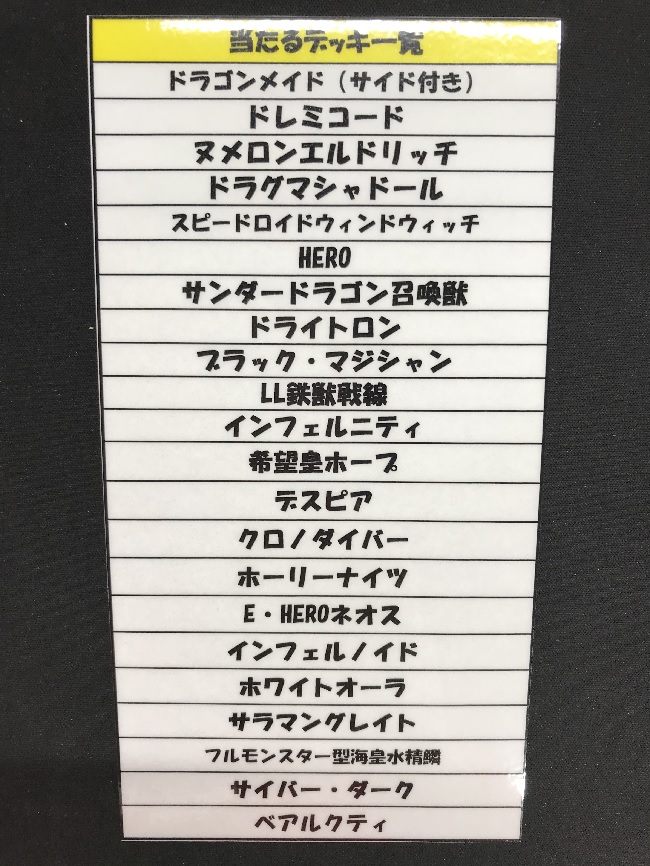 当たるデッキ一覧
ドラゴンメイド（サイド付き）
ドレミコード
ヌメロンエルドリッチ
ドラグマシャドール
スピードロイドウィンドウィッチ
HERO
サンダードラゴン召喚獣
ドライトロン
ブラック・マジシャン
LL鉄獣戦線
インフェルニティ
希望皇ホープ
デスピア
クロノダイバー
ホーリーナイツ
E・HEROネオス
インフェルノイド
ホワイトオーラ
サラマングレイト
フルモンスター型海皇水精鱗
サイバー・ダーク
ベアルクティ